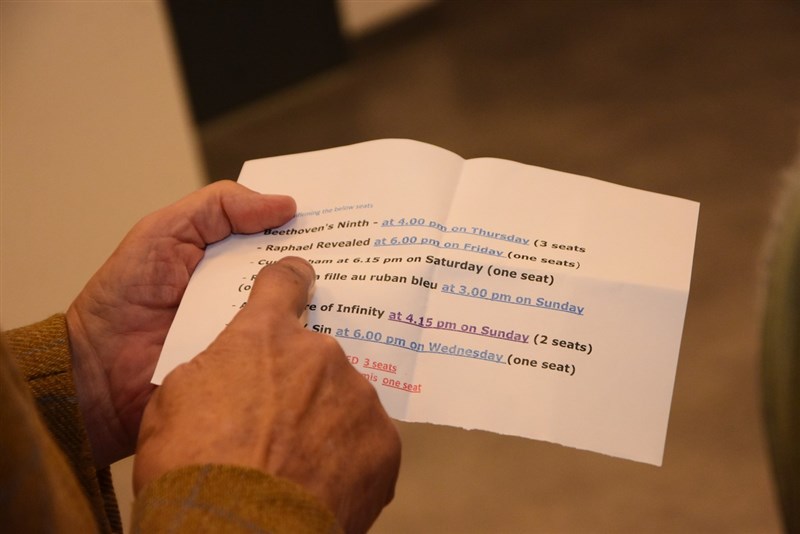 the below seats
Beethoven's Ninth - at 4.00 pm on Thursday (3 seats
- Raphael Revealed at 6.00 pm on Friday (one seats)
at 6.15 pm on Saturday (one seat)
fille au ruban bleu at 3.00 pm on Sunday
of Infinity at 4.15 pm on Sunday (2 seats)
Sin at 6.00 pm on Wednesday (one seat)
3 seats
one seat